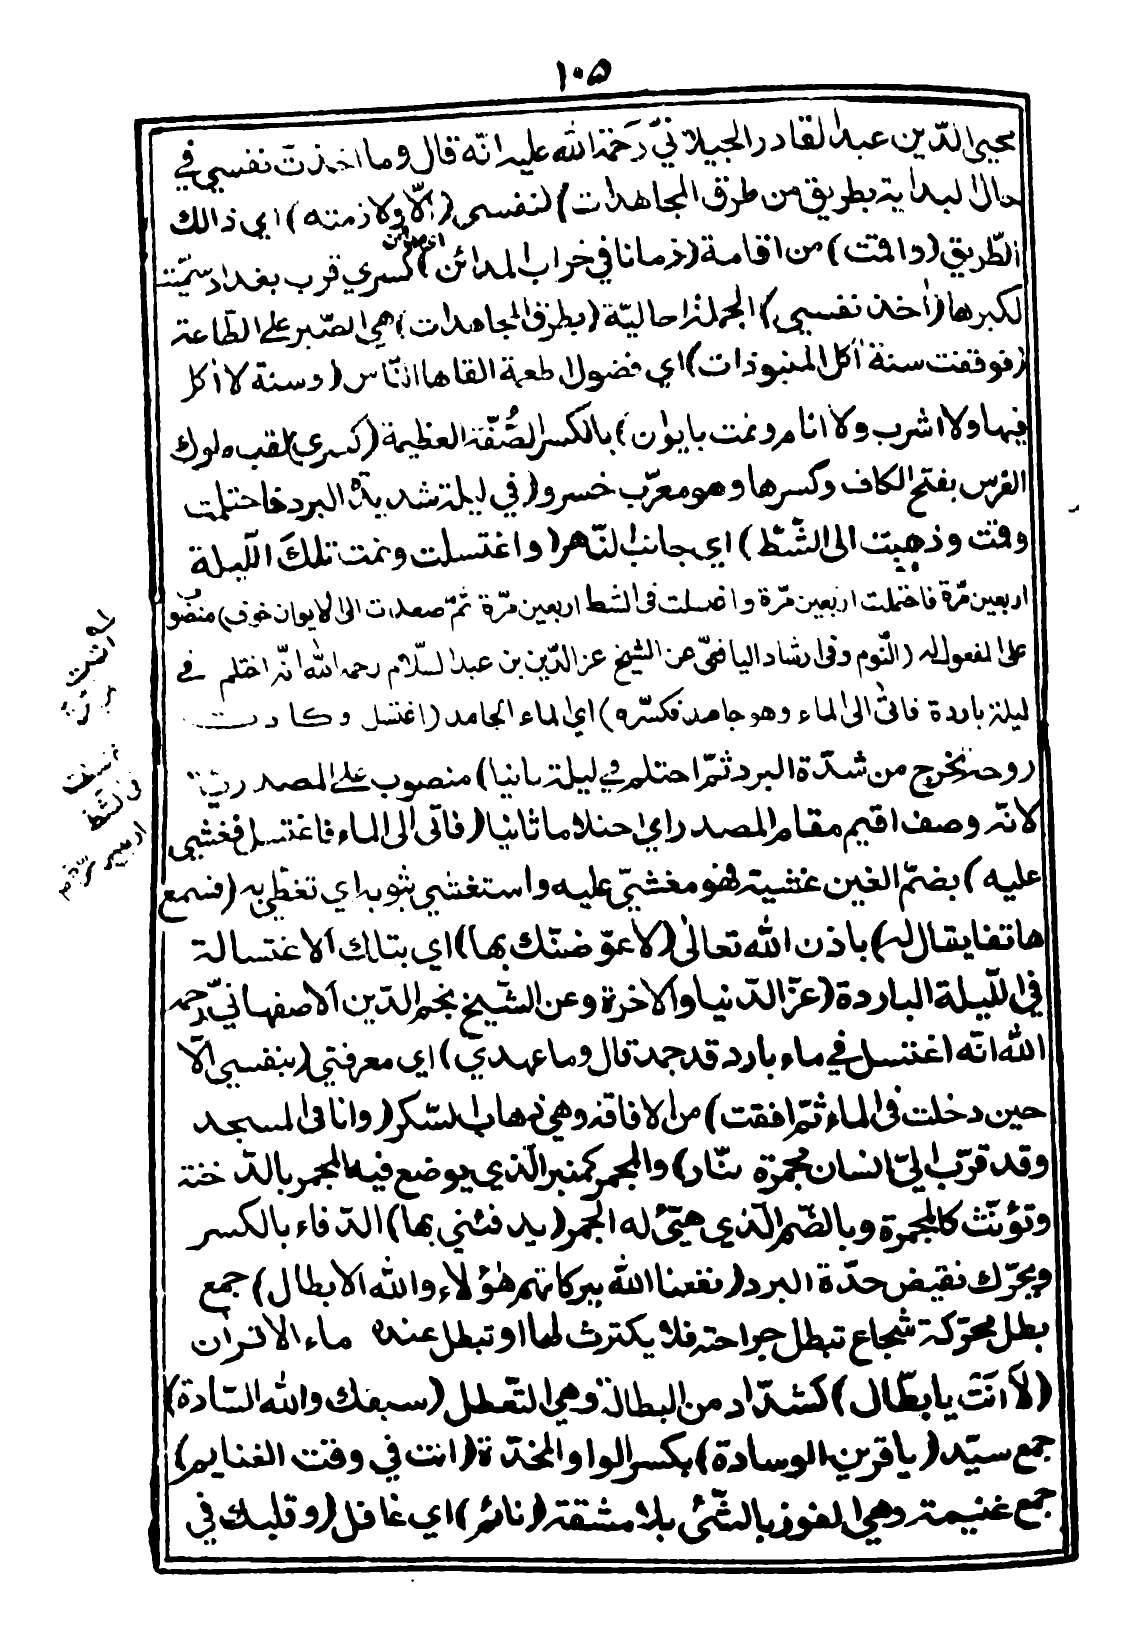 ١٠٥
محيى الدّين عبد القادر الجيلانيّ رَحمَة الله عليه انّه قال وما اخذتَ نفسي في
حال البداية بطريق من طرق المجاهدات) لنفسى (الّا ولازمته) اي ذالك
الطّريق (واقمت) من اقامة (زمانا في خراب المدائن) كسري قرب بغداد سمّيت
لكبرها (اخذ نفسي) الجملة حاليّة (بطرق المجاهدات) هي الصّبر على الطّاعة
(فوقفت سنة آكل المنبوذات) اي فضول اطعمة القاها النّاس (وسنة لا اكل
فيها ولا اشرب ولا انام ونمت بايوان) بالكسر الصُّفّة العظيمة (كسرى) لقب ملوك
الفرس بفتح الكاف وكسرها وهو معرّب خسرو (في ليلة شديدة البرد فاحتلمت
وقمت وذهبت الى الشّطّ) اي جانب النّهر (واغتسلت ونمت تلكَ اللّيلة
اربعين مرّة فاحتلمت اربعين مرّة واغتسلت فى الشط اربعين مرّة ثمّ صعدت الى الايوان خوف) منصوب
على المفعول له (النّوم وفى ارشاد اليافعىّ عن الشيخ عز الدّين بن عبد السّلام رحمه الله انّه احتلم في
ليلة باردة فاتى الى الماء وهو جامد فكسّره) اي الماء الجامد (اغتسل وكادت
روحه تخرج من شدّة البرد ثمّ احتلم في ليلة ثانيا) منصوب على المصدريّة
لانّه وصف اقيم مقام المصدر اي احتلاما ثانيا (فاتى الى الماء فاغتسل فغشي
عليه) بضمّ الغين غشية فهو مغشيّ عليه واستغشي بثوبه اي تغطّي به (فسمع
هاتفا يقال له) باذن الله تعالىٰ (لاعوّضنّك بها) اي بتلك الاغتسالة
في اللّيلة الباردة (عزّ الدّنيا والآخرة وعن الشّيخ نجم الدّين الاصفهانيّ رحمه
الله انّه اغتسل في ماء بارد قد جمد قال وما عهدي) اي معرفتي (بنفسي الّا
حين دخلت فى الماء ثمّ افقت) من الافاقة وهي ذهاب السّكر (وانا فى المسجد
وقد قرّب اليّ انسان مجمرة بنّار) والمجمر كمنبر الّذي يوضع فيه الجمر بالدّخنة
وتؤنّث كالمجمرة وبالضّم الّذي هيّئ له الجمر (يدفئني بها) الدّفاء بالكسر
ويحرّك نقيض حدّة البرد (نفعنا الله ببركاتهم هٰؤلاء والله الابطال) جمع
بطل محرّكة شجاع تبطل جراحته فلا يكترث لها او تبطل عنده دماء الاقران
(لاَ انَتَ يا بطّال) كشدّاد من البطالة وهي التّعطل (سبقك والله السّادة)
جمع سيّد (يا قرين الوسادة) بكسر الواو المخدّة (انت في وقت الغنايم)
جمع غنيمة وهي الفوز بالشّئ بلا مشقة (نائم) اي غافل (وقلبك في